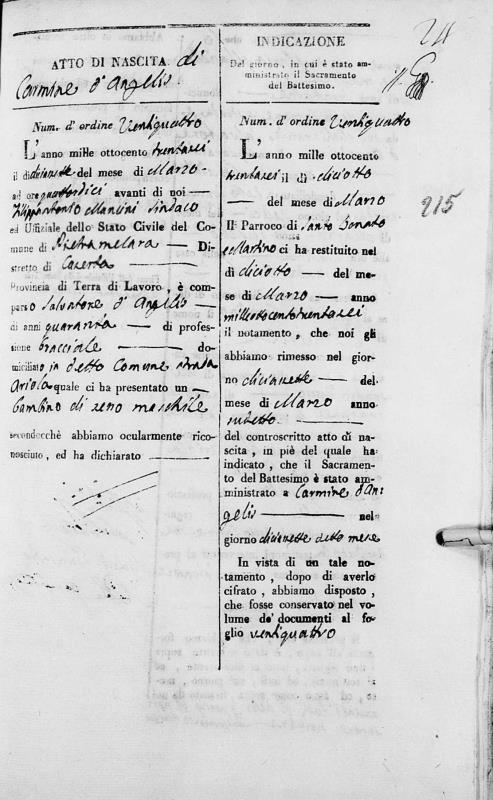 24
ATTO DI NASCITA di
Carmine d'Angelis.
Num. d'ordine Ventiquattro
L'anno mille ottocento trentasei
il dì diciasette del mese di Marzo
ad ore quattordici avanti di noi
Filippantonio Mancini Sindaco
ed Uffiziale dello Stato Civile del Co-
mune di Pietramelara — Di-
stretto di Caserta
Provincia di Terra di Lavoro, è com-
parso Salvatore d'Angelis
di anni quaranta — di profes-
sione bracciale — do-
miciliato in detto Comune strada
Ariola quale ci ha presentato un
bambino di seno maschile
secondocchè abbiamo ocularmente rico-
nosciuto, ed ha dichiarato
INDICAZIONE
Del giorno, in cui è stato am-
ministrato il Sacramento
del Battesimo.
Num. d'ordine Ventiquattro
L'anno mille ottocento
trentasei il dì diciotto
— del mese di Marzo
Il Parroco di Santo Donato
e Martino ci ha restituito nel
dì diciotto — del me-
se di Marzo — anno
milleottocentotrentasei
il notamento, che noi gli
abbiamo rimesso nel gior-
no diciasette — del
mese di Marzo anno
sudetto
del controscritto atto di na-
scita, in piè del quale ha
indicato, che il Sacramen-
to del Battesimo è stato am-
ministrato a Carmine d'An-
gelis — nel
giorno diciasette detto mese
In vista di un tale no-
tamento, dopo di averlo
cifrato, abbiamo disposto,
che fosse conservato nel vo-
lume de' documenti al fo-
glio ventiquattro
215